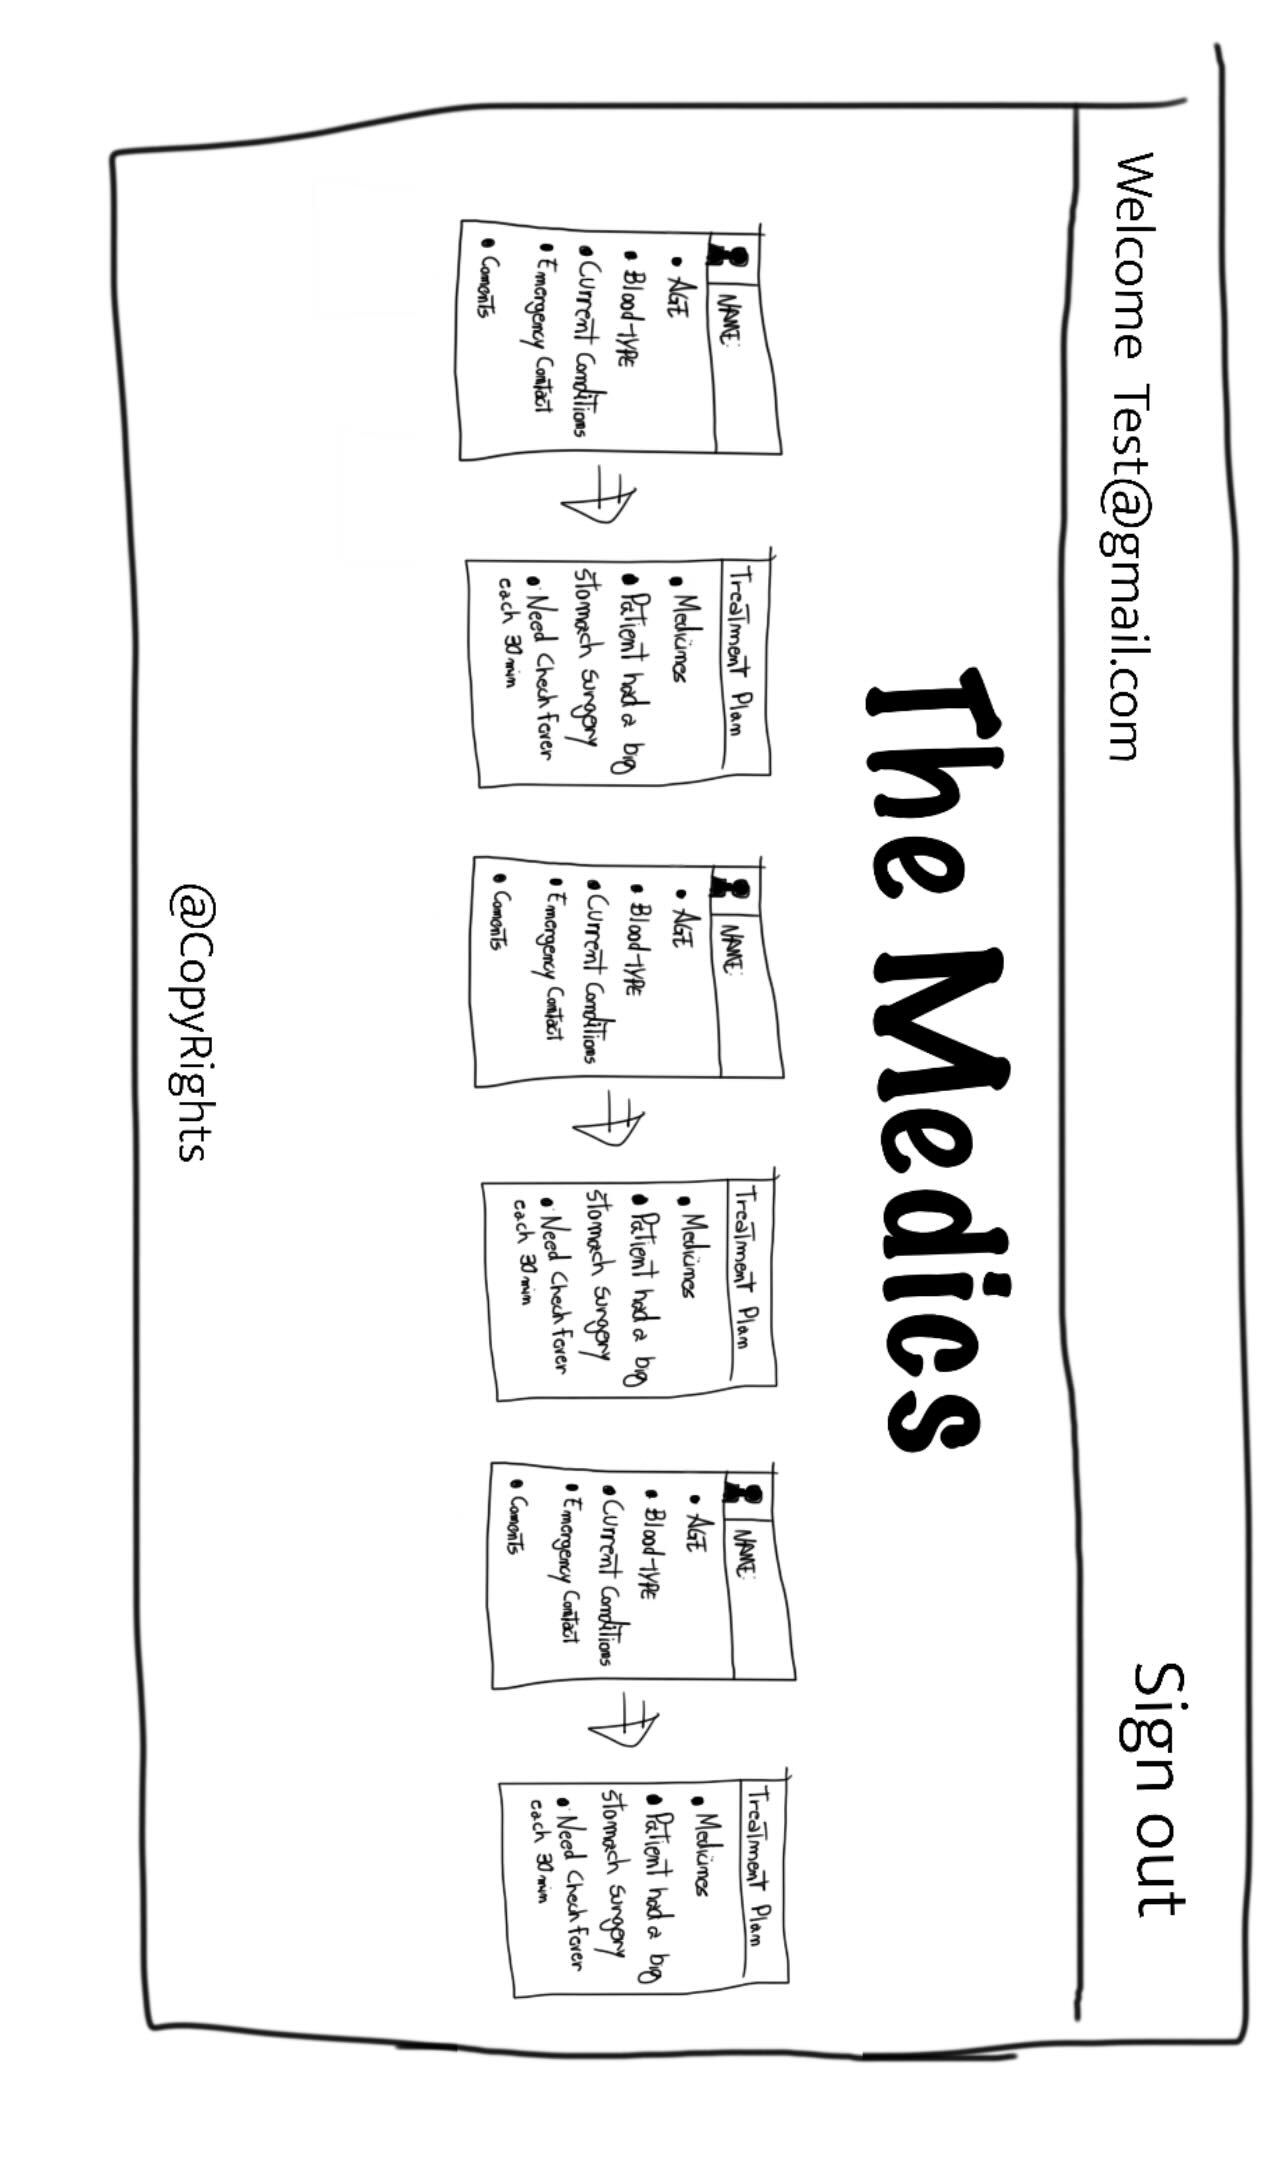 Welcome Test@gmail.com
Sign out
The Medics
NAME:
• AGE
• Blood-TYPE
• Current Conditions
• Emergency Contact
• Coments
Treatment Plan
• Medicines
• Patient had a big
stomach surgery
• Need Chech Fever
each 30 min
NAME:
• AGE
• Blood-TYPE
• Current Conditions
• Emergency Contact
• Coments
Treatment Plan
• Medicines
• Patient had a big
stomach surgery
• Need Chech Fever
each 30 min
NAME:
• AGE
• Blood-TYPE
• Current Conditions
• Emergency Contact
• Coments
Treatment Plan
• Medicines
• Patient had a big
stomach surgery
• Need Chech Fever
each 30 min
@CopyRights